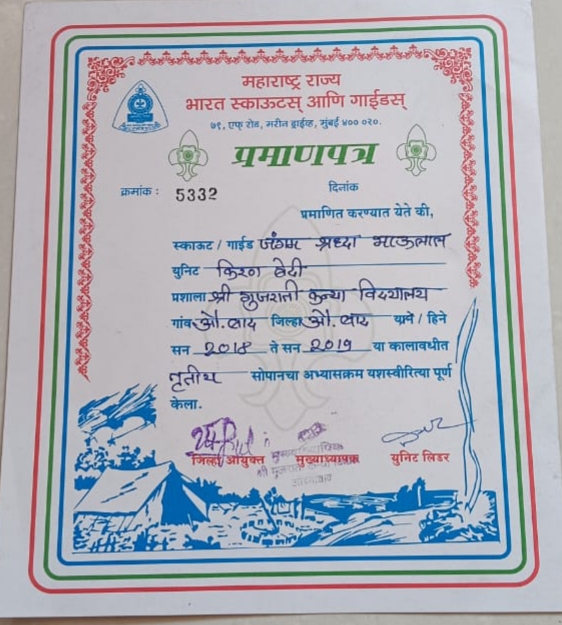 महाराष्ट्र राज्य
भारत स्काऊटस् आणि गाईडस्
७९, एफ् रोड, मरीन ड्राईव्ह, मुंबई ४०० ०२०.
प्रमाणपत्र
क्रमांक : 5332 दिनांक
प्रमाणित करण्यात येते की,
स्काऊट / गाईड जंगम श्रध्दा भाऊलाल
युनिट किरण बेदी
प्रशाला श्री गुजराती कन्या विद्यालय
गांव औ.बाद जिल्हा औ.बाद याने / हिने
सन 2018 ते सन 2019 या कालावधीत
तृतीय सोपानचा अभ्यासक्रम यशस्वीरित्या पूर्ण
केला.
जिल्हा आयुक्त मुख्याध्यापक युनिट लिडर
मुख्याध्यापिका